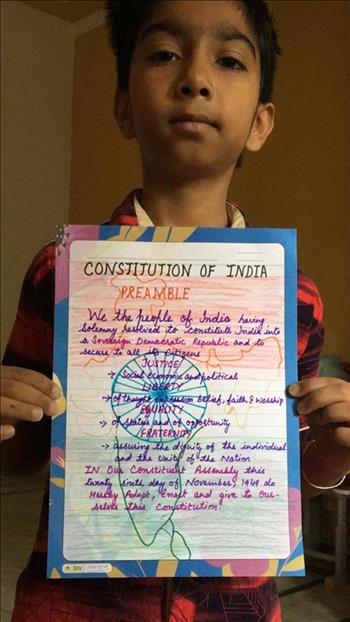 CONSTITUTION OF INDIA
PREAMBLE
We the people of India having
Solemny resolved to Constitute India into
a Sovereign Democratic Republic and to
secure to all its Citizens
JUSTICE
→ Social economic and political
LIBERTY
→ of thought expression belief, faith & worship
EQUALITY
→ of status and of opportunity
FRATERNITY
→ assuring the dignity of the individual
and the Unity of the Nation
IN Our Constituent Assembly this
twenty sixth day of November, 1949 do
Hereby Adopt, Enact and give to Our-
selves this Constitution!